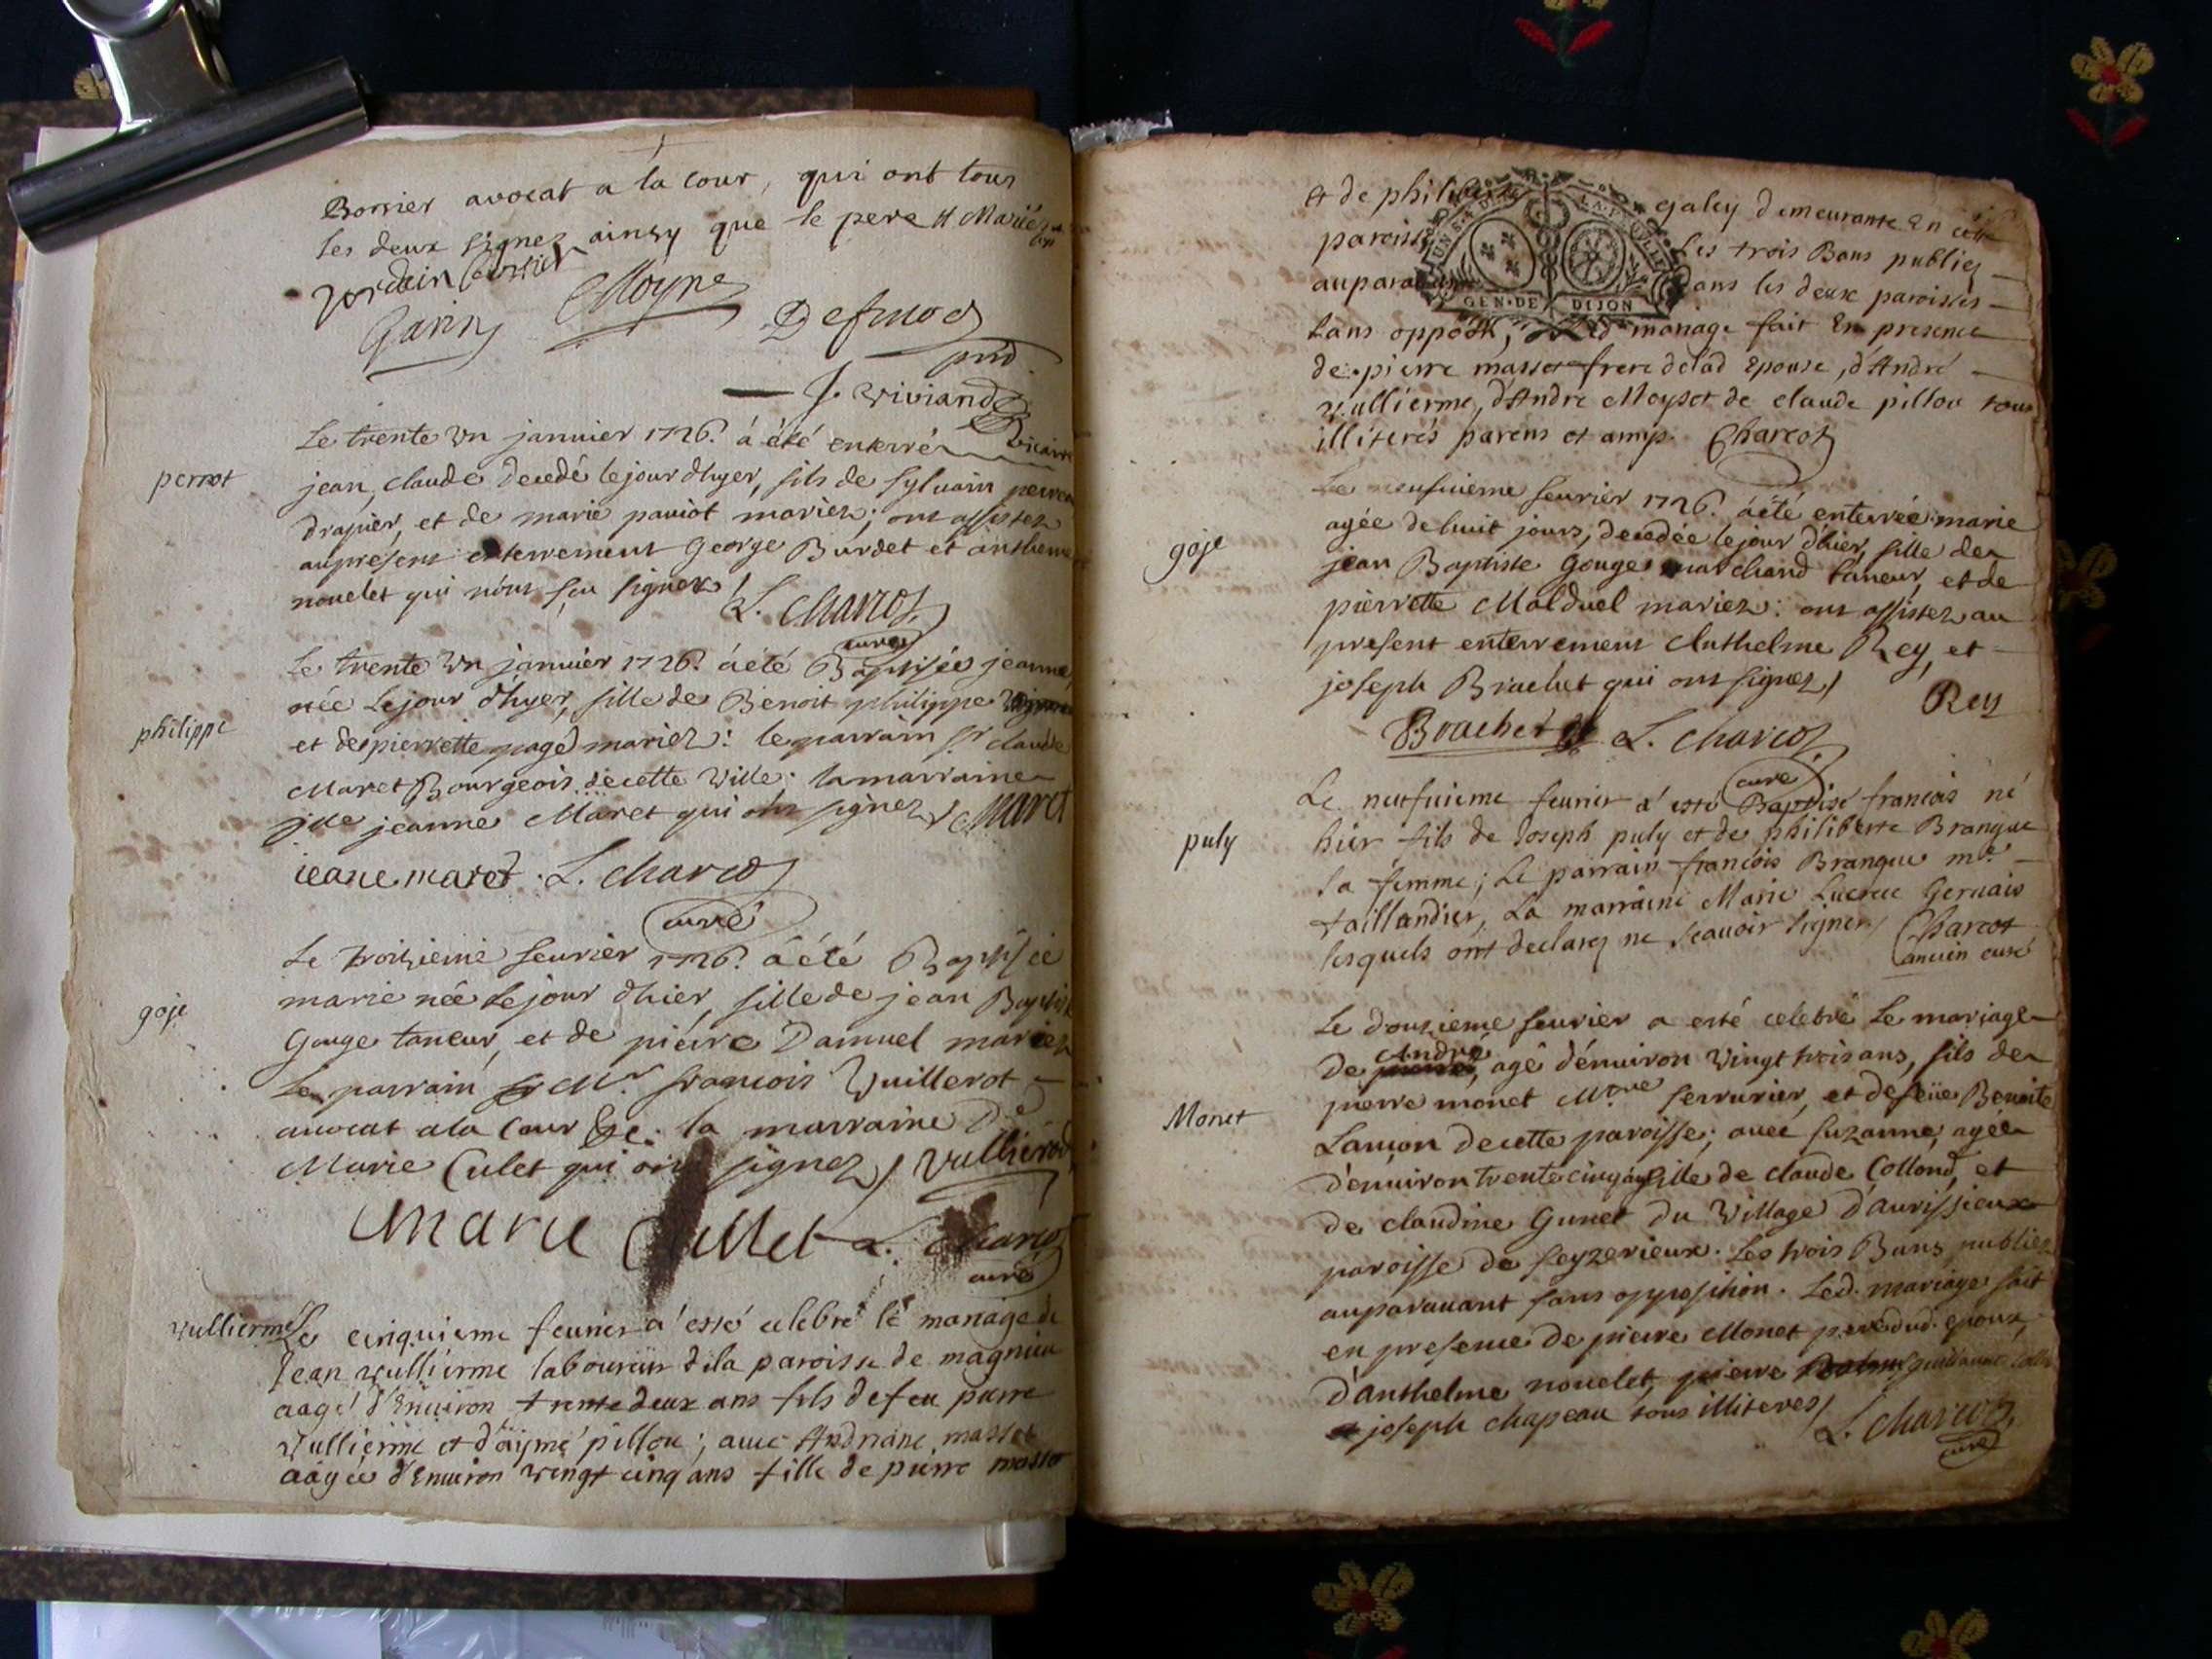 Borrier avocat a la cour, qui ont tous
les deux signez ainsy que le pere
Garin Moyne Defuod
J. Viviand
Vicaire
perrot
Le trente un janvier 1726. á été enterré
jean, claude decedé le jour d'hyer, fils de sylvain
drapier, et de marie paviot mariez; ont assistez
au present enterrement George Burdet et anthelme
nouelet qui n'ont sçu signer
L. Charcot
curé
philippe
Le trente un janvier 1726. á été Baptisée jeanne,
née le jour d'hyer, fille de Benoit philippe
et de pierrette page mariez: le parrain sr claude
Maret Bourgeois de cette Ville; la marraine
jlle jeanne Maret qui ont signez Maret
ieane maret. L. Charcot
curé
goje
Le troisieme feurier 1726. á été Baptisée
marie née le jour d'hier, fille de jean Baptiste
Gouge taneur, et de piérre Damuel mariez
Le parrain Mr. francois Vuillerot
avocat a la Cour &c. la marraine Dle
Marie Culet qui ont signez Vullierod
Marie Cullet L. Charcot
curé
vullierme
Le cinquieme feurier a' esté celebré le mariage de
Jean vullierme laboureur de la paroisse de magnieu
aagé d'Enuiron trente deux ans fils de feu pierre
Vullierme et d'aymé pillou; auec Andriane masset
aagée d'Enuiron vingt cinq ans fille de pierre masset
et de philiberte galey demeurante En cette
paroisse Les trois Bans publiez
auparavant dans les deux paroisses
sans oppoon, Led mariage fait En presence
de pierre masset frere de lad Epouse, d'André
vullierme, d'Andre Moyset de claude pillou tous
illiterés parens et amys. Charcot
GEN. DE DIJON
goje
Le neufuieme feurier 1726. á été enterrée marie
agée de huit jours, decedée le jour d'hier, fille de
jean Baptiste Gouge marchand taneur, et de
pierrette Malduel mariez: ont assistez au
present enterrement Anthelme Rey, et
joseph Brachet qui ont signez
Rey
Brachet L. Charcot
curé
puly
Le neufuieme feurier a' esté Baptisé francois né
hier fils de Joseph puly et de philiberte Brangue
sa femme; Le parrain francois Brangue me
taillandier, La marraine Marie Lucrece Geruais
lesquels ont declarez ne scauoir signer Charcot
ancien curé
Monet
Le douzieme feurier a esté celebré Le mariage
André
de pierre, agé d'enuiron Vingt trois ans, fils de
pierre monet Mtre serrurier, et de feüe Benoite
Lanion de cette paroisse; auec Suzanne, agée
d'enuiron trente cinq ans fille de claude Collond, et
de claudine Gunet du Village d'aurissieux
paroisse de Seyzerieux. Les trois Bans publiez
auparauant sans opposition. Led. mariage fait
en presence de pierre Monet pere dud. epoux,
d'anthelme nouelet, pierre guillaume
et joseph chapeau tous illiteres
L. Charcot
curé